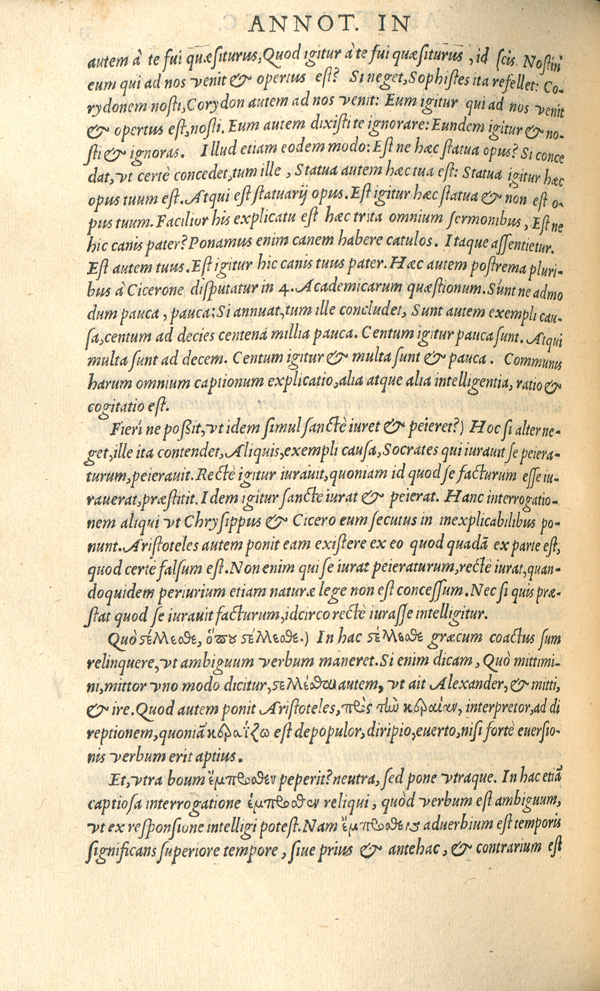 ANNOT. IN
autem à te fui quæsiturus, Quod igitur à te fui quæsiturus, id scis. Nostin'
eum qui ad nos venit & opertus est? Si neget, Sophistes ita refellet: Co-
rydonem nosti, Corydon autem ad nos venit: Eum igitur qui ad nos venit
& opertus est, nosti. Eum autem dixisti te ignorare: Eundem igitur & no-
sti & ignoras. Illud etiam eodem modo: Est ne hæc statua opus? Si conce
dat, vt certè concedet, tum ille, Statua autem hæc tua est: Statua igitur hæc
opus tuum est. Atqui est statuarij opus. Est igitur hæc statua & non est o-
pus tuum. Facilior his explicatu est hæc trita omnium sermonibus, Est ne
hic canis pater? Ponamus enim canem habere catulos. Itaque assentietur.
Est autem tuus. Est igitur hic canis tuus pater. Hæc autem postrema pluri-
bus à Cicerone disputatur in 4. Academicarum quæstionum. Sunt ne admo
dum pauca, pauca: Si annuat, tum ille concludet, Sunt autem exempli cau-
sa, centum ad decies centena millia pauca. Centum igitur pauca sunt. Atqui
multa sunt ad decem. Centum igitur & multa sunt & pauca. Communis
harum omnium captionum explicatio, alia atque alia intelligentia, ratio &
cogitatio est.
Fieri ne poßit, vt idem simul sanctè iuret & peieret?) Hoc si alter ne-
get, ille ita contendet, Aliquis, exempli causa, Socrates qui iurauit se peiera-
turum, peierauit. Rectè igitur iurauit, quoniam id quod se facturum esse iu-
rauerat, præstitit. Idem igitur sanctè iurat & peierat. Hanc interrogatio-
nem aliqui vt Chrysippus & Cicero eum secutus in inexplicabilibus po-
nunt. Aristoteles autem ponit eam existere ex eo quod quadã ex parte est,
quod certè falsum est. Non enim qui se iurat peieraturum, rectè iurat, quan-
doquidem periurium etiam naturæ lege non est concessum. Nec si quis præ-
stat quod se iurauit facturum, idcirco rectè iurasse intelligitur.
Quò ςέλλεσθε, ὅπου ςέλλεσθε.) In hac ςέλλεσθε græcum coactus sum
relinquere, vt ambiguum verbum maneret. Si enim dicam, Quò mittimi-
ni, mittor vno modo dicitur, ςέλλεσθαι autem, vt ait Alexander, & mitti,
& ire. Quod autem ponit Aristoteles, interpretor, ad di
reptionem, quoniã est depopulor, diripio, euerto, nisi fortè euersio-
nis verbum erit aptius.
Et, vtra boum ἔμπροσθεν peperit? neutra, sed pone vtraque. In hac etiã
captiosa interrogatione ἔμπροσθεν reliqui, quòd verbum est ambiguum,
vt ex responsione intelligi potest. Nam ἔμπροσθεν aduerbium est temporis
significans superiore tempore, siue prius & antehac, & contrarium est